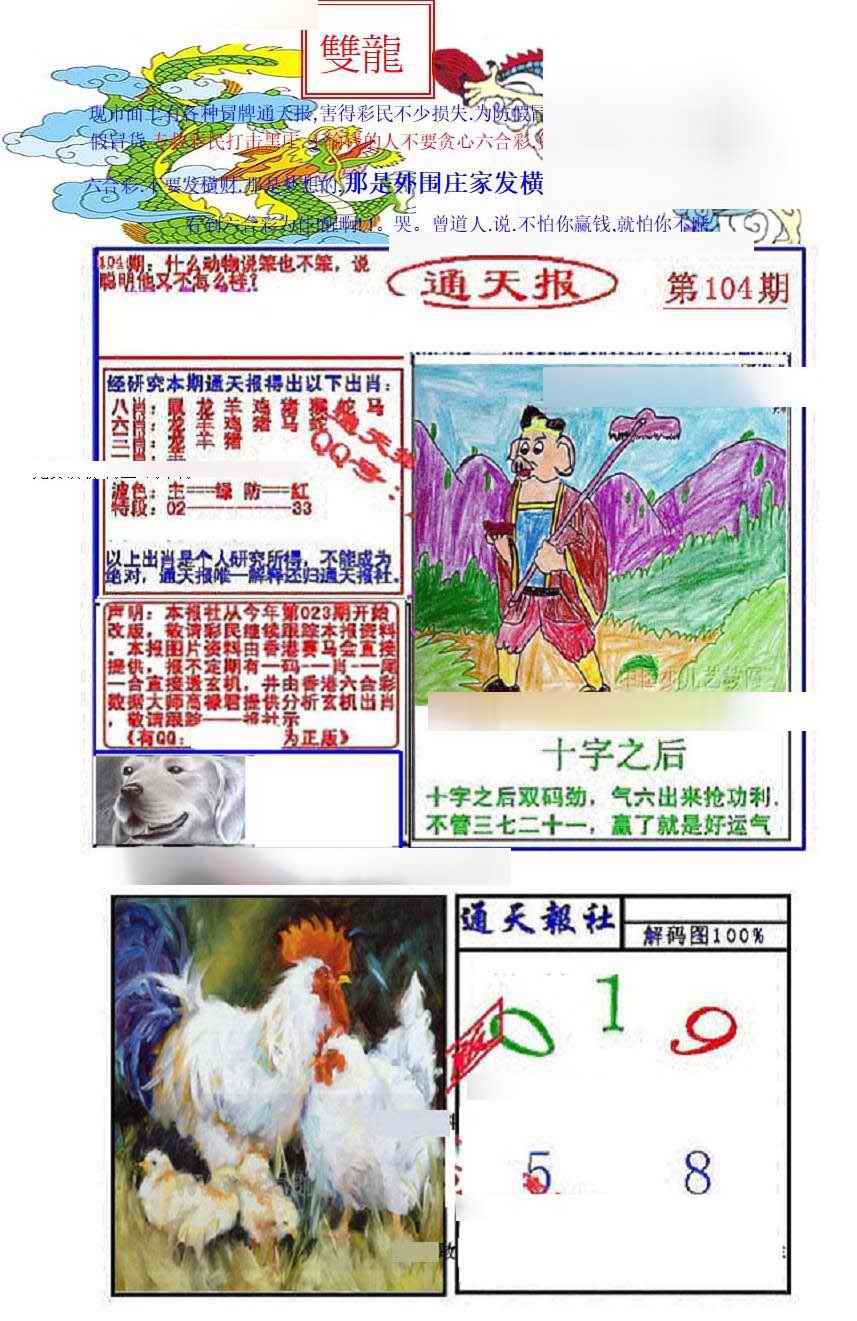 雙龍
现市面上有各种冒牌通天报,害得彩民不少损失.为防假冒
假冒货.专救彩民打击黑庄.不输钱的人不要贪心六合彩
六合彩.不要发横财.那是梦想的.那是外围庄家发横
看到六合彩为你醒啊!。哭。曾道人.说.不怕你赢钱,就怕你不赌.
104期：什么动物说笨也不笨，说
聪明他又不怎么样？
通天报
第104期
经研究本期通天报得出以下出肖：
八肖：鼠 龙 羊 鸡 猪 猴 蛇 马
六肖：龙 羊 鸡 猪 马 蛇
三肖：龙 羊 猪
通天报
QQ号：
波色：主===绿 防==红
特段：02----------33
以上出肖是个人研究所得，不能成为
绝对，通天报唯一解释还归通天报社。
声明：本报社从今年第023期开始
改版，敬请彩民继续跟踪本报资料
．本报图片资料由香港赛马会直接
提供，报不定期有一码---肖---尾
一合直接透玄机，并由香港六合彩
数据大师高禄君提供分析玄机出肖
，敬请跟踪——报社示
《有QQ: 为正版》
十字之后
十字之后双码劲，气六出来抢功利．
不管三七二十一，赢了就是好运气
通天報社
解码图100%
0 1 9
5 8